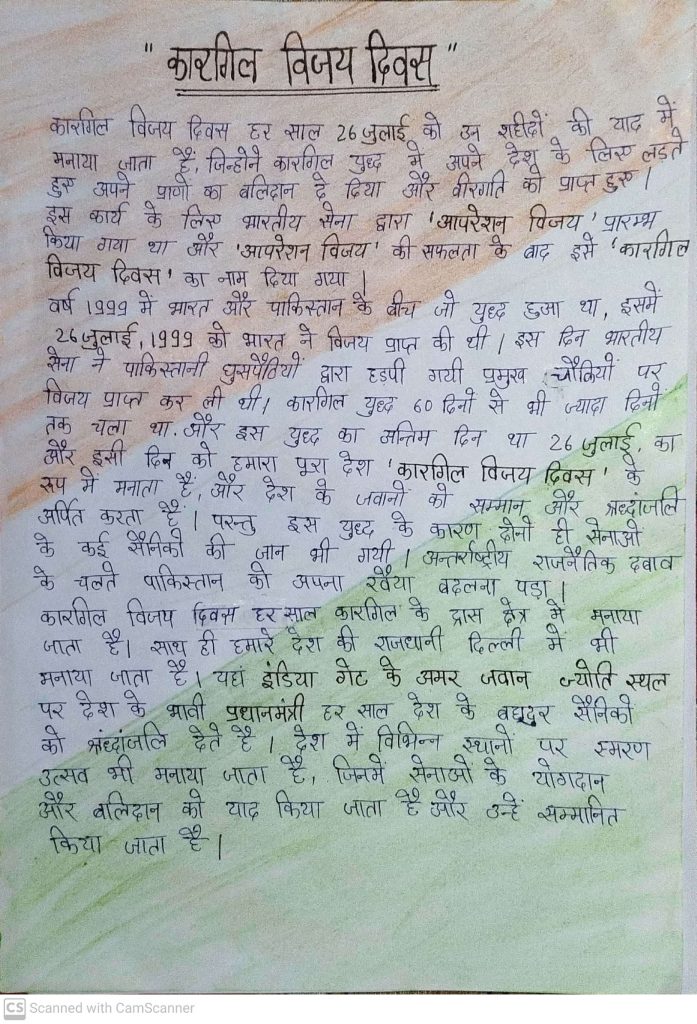 " कारगिल विजय दिवस "
कारगिल विजय दिवस हर साल 26 जुलाई को उन शहीदों की याद में
मनाया जाता है, जिन्होंने कारगिल युध्द में अपने देश के लिए लडते
हुए अपने प्राणों का बलिदान दे दिया और वीरगति को प्राप्त हुए।
इस कार्य के लिए भारतीय सेना द्वारा 'आपरेशन विजय' प्रारम्भ
किया गया था और 'आपरेशन विजय' की सफलता के बाद इसे 'कारगिल
विजय दिवस' का नाम दिया गया।
वर्ष 1999 में भारत और पाकिस्तान के बीच जो युध्द हुआ था, इसमें
26 जुलाई, 1999 को भारत ने विजय प्राप्त की थी। इस दिन भारतीय
सेना ने पाकिस्तानी घुसपैठियों द्वारा हड़पी गयी प्रमुख चौकियों पर
विजय प्राप्त कर ली थी। कारगिल युध्द 60 दिनों से भी ज्यादा दिनों
तक चला था. और इस युध्द का अन्तिम दिन था 26 जुलाई, का
और इसी दिन को हमारा पूरा देश 'कारगिल विजय दिवस' के
रूप में मनाता है, और देश के जवानों को सम्मान और श्रध्दांजलि
अर्पित करता है। परन्तु इस युध्द के कारण दोनों ही सेनाओं
के कई सैनिकों की जान भी गयी। अन्तर्राष्ट्रीय राजनैतिक दबाव
के चलते पाकिस्तान को अपना रवैया बदलना पड़ा।
कारगिल विजय दिवस हर साल कारगिल के द्रास क्षेत्र में मनाया
जाता है। साथ ही हमारे देश की राजधानी दिल्ली में भी
मनाया जाता है। यहां इंडिया गेट के अमर जवान ज्योति स्थल
पर देश के भावी प्रधानमंत्री हर साल देश के बहादुर सैनिकों
को श्रंध्दांजलि देते है। देश में विभिन्न स्थानों पर स्मरण
उत्सव भी मनाया जाता है, जिनमें सेनाओं के योगदान
और बलिदान को याद किया जाता है और उन्हें सम्मानित
किया जाता है।
CS Scanned with CamScanner